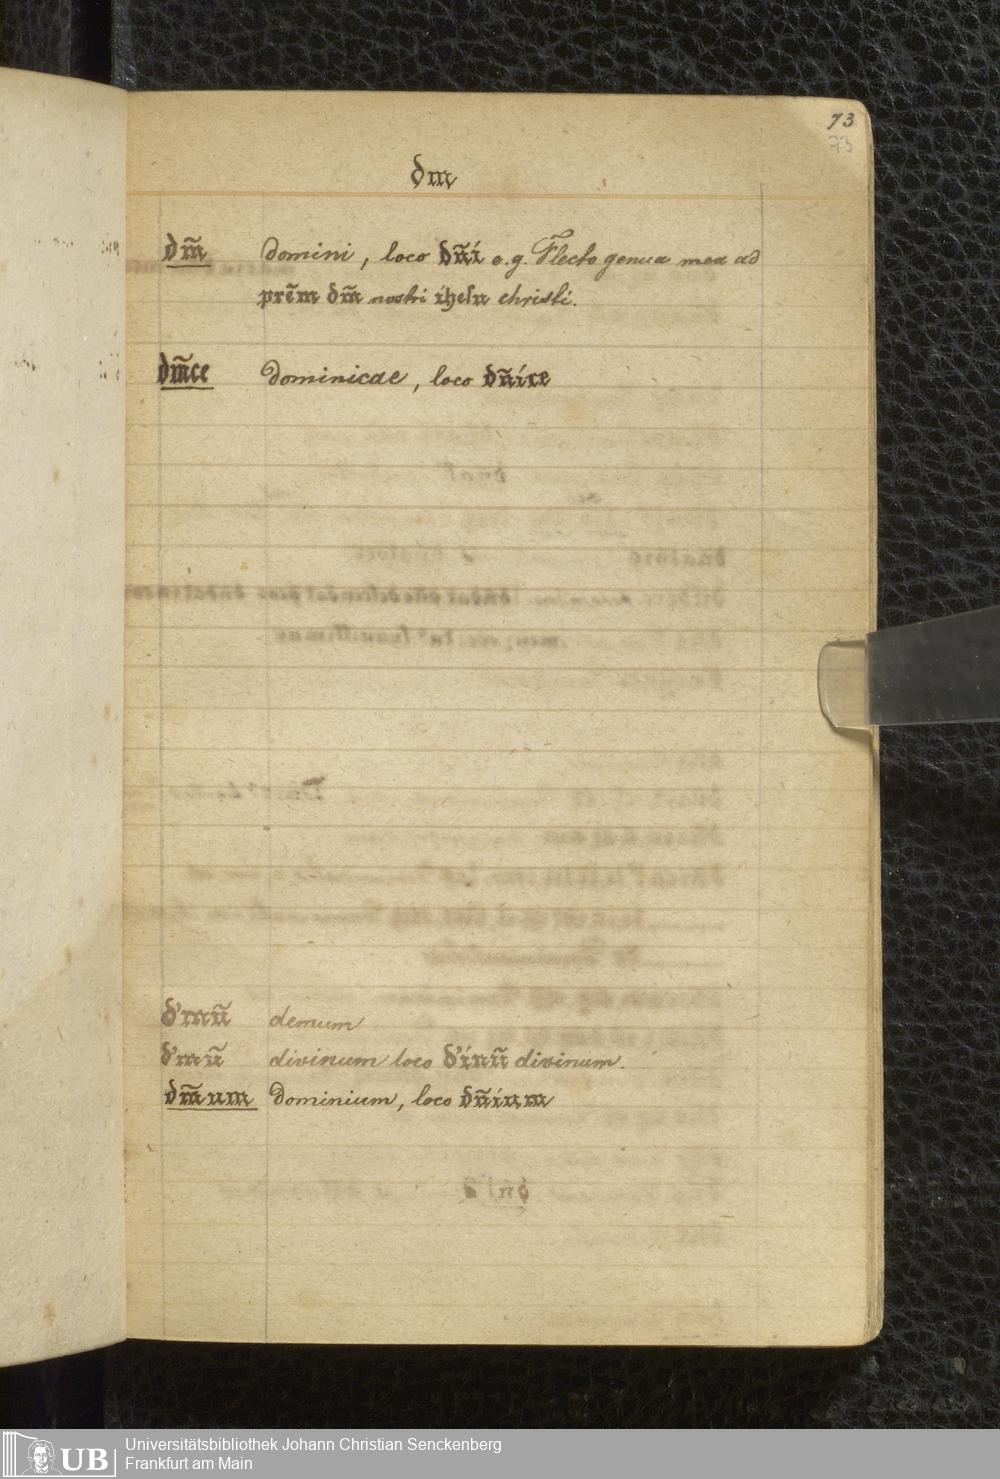 73
73
dm
dm̄ domini, loco dn̄i e.g. Flecto genua mea ad
prēm dm̄ nostri ihesu christi.
dm̄ce Dominicae, loco dn̄ice
d'mū demum
d'mū divinum loco d'inū divinum.
dm̄um Dominium, loco dn̄ium
UB Universitätsbibliothek Johann Christian Senckenberg
Frankfurt am Main